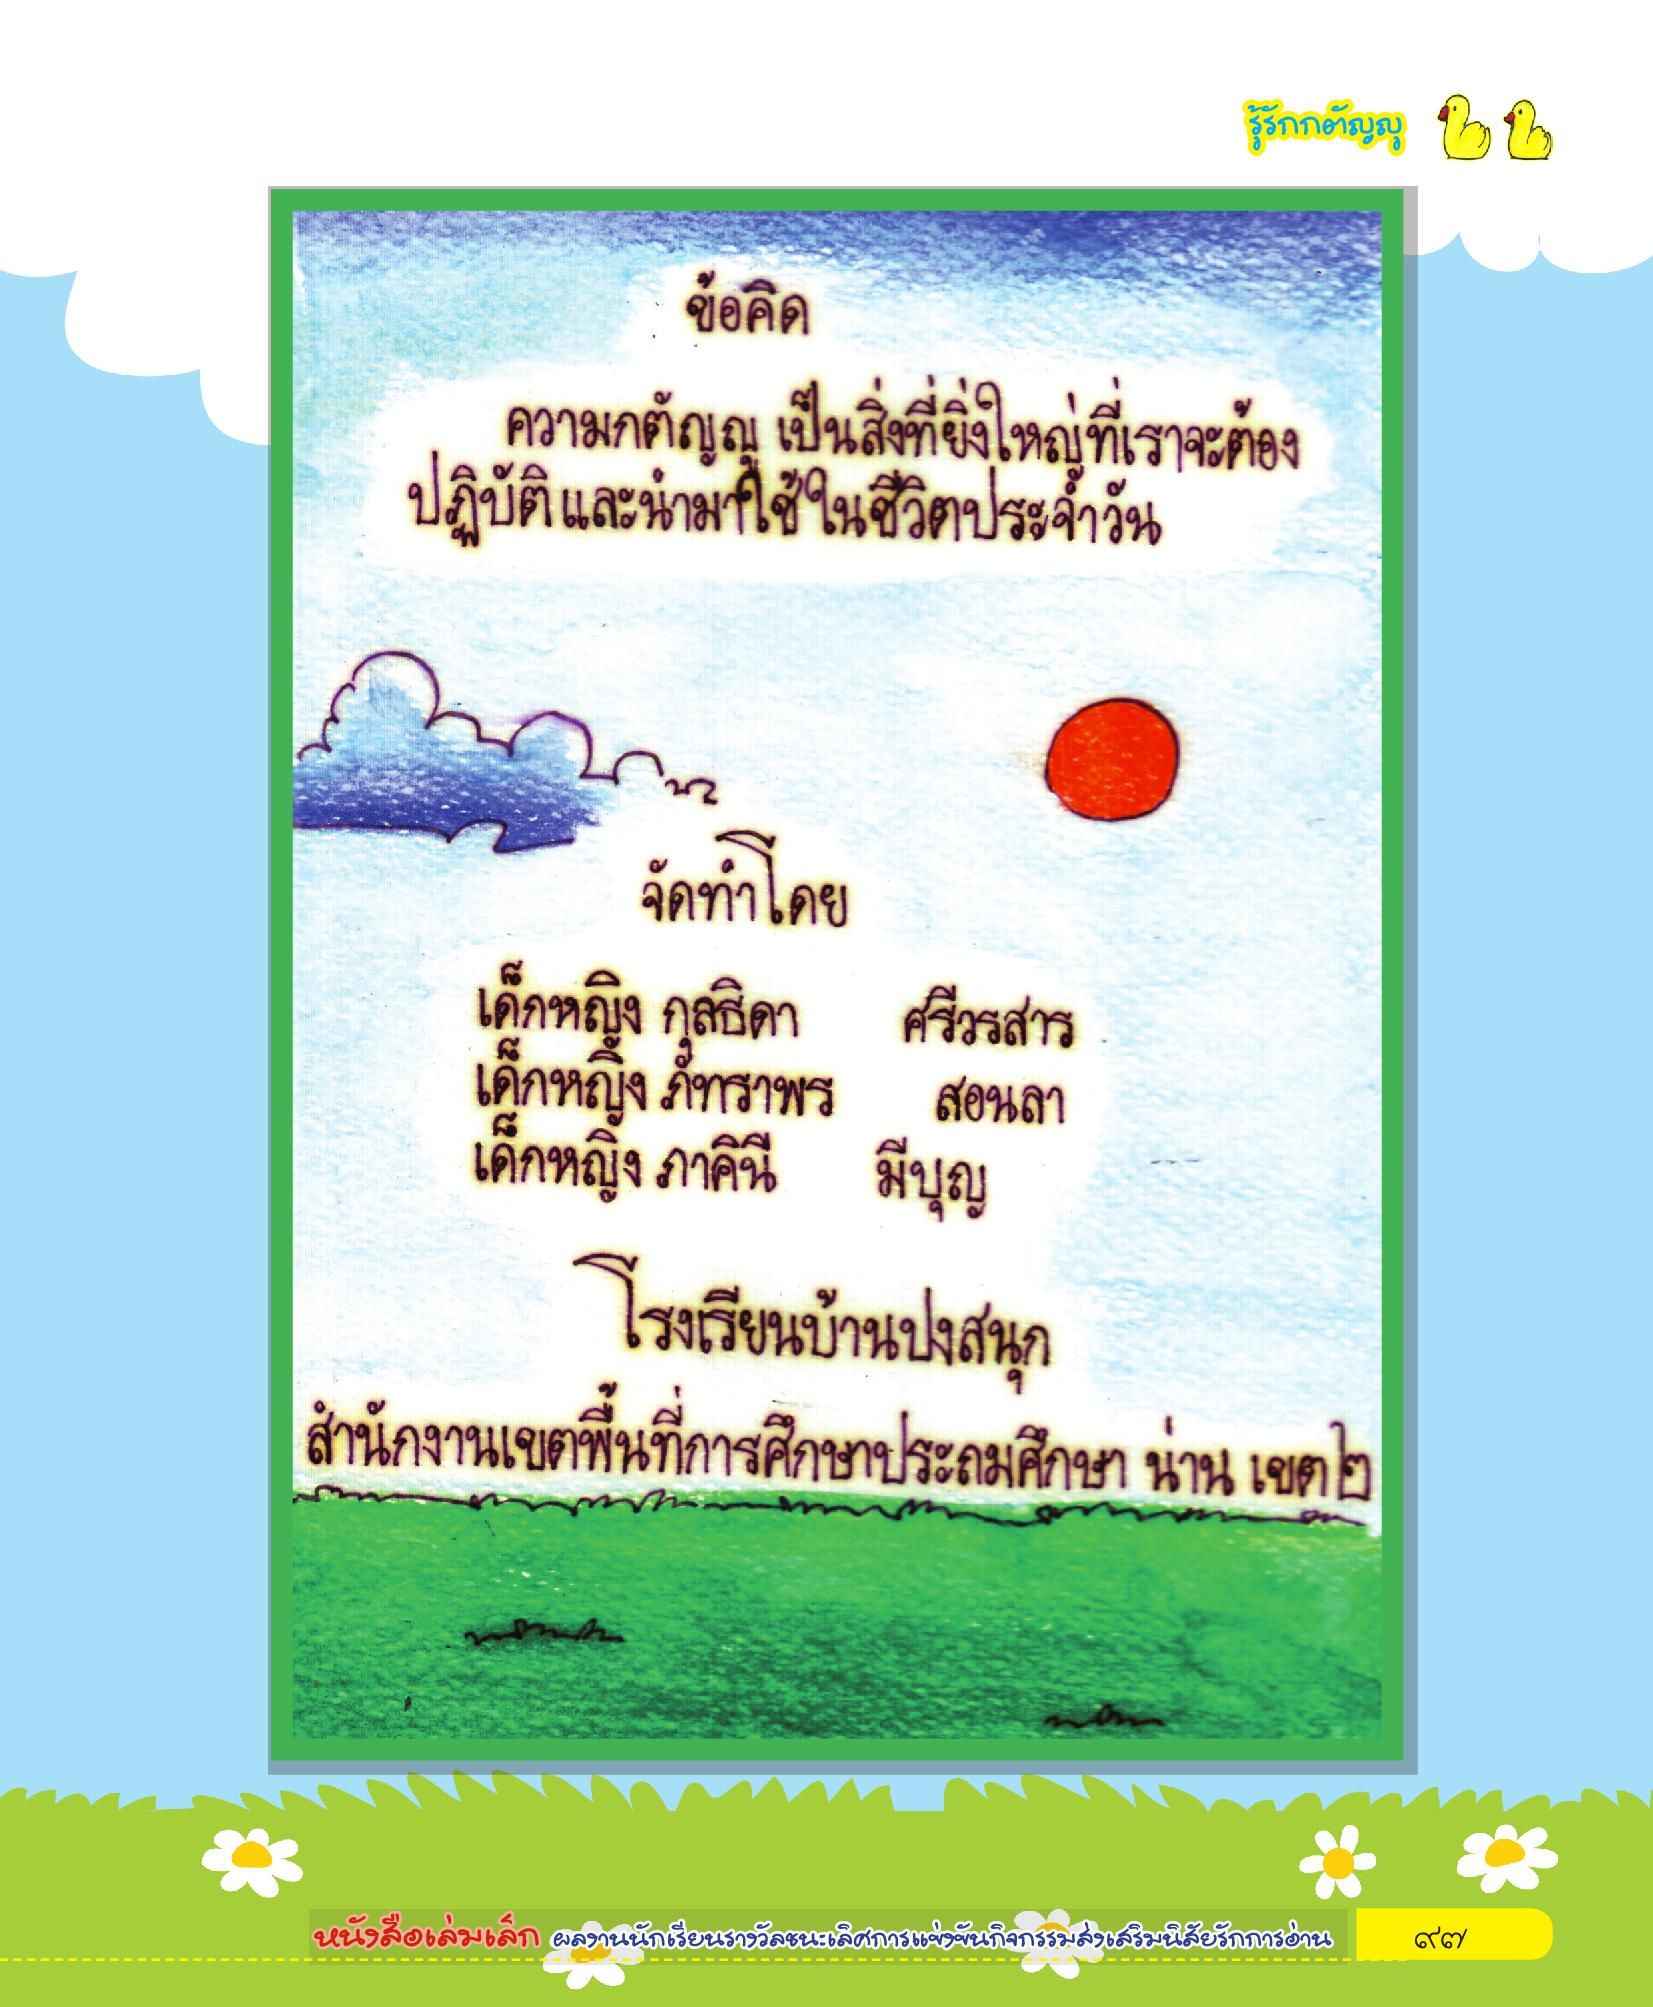 รู้รักกตัญญู
ข้อคิด
ความกตัญญู เป็นสิ่งที่ยิ่งใหญ่ที่เราจะต้อง
ปฏิบัติและนำมาใช้ในชีวิตประจำวัน
จัดทำโดย
เด็กหญิง กุลธิดา ศรีวรสาร
เด็กหญิง ภัทราพร สอนลา
เด็กหญิง ภาคินี มีบุญ
โรงเรียนบ้านปงสนุก
สำนักงานเขตพื้นที่การศึกษาประถมศึกษา น่าน เขต ๒
หนังสือเล่มเล็ก ผลงานนักเรียนรางวัลชนะเลิศการแข่งขันกิจกรรมส่งเสริมนิสัยรักการอ่าน ๙๗